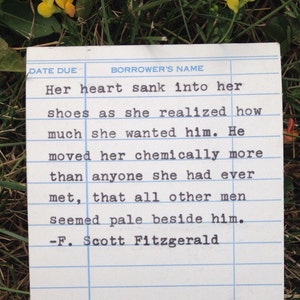 DATE DUE BORROWER'S NAME
Her heart sank into her
shoes as she realized how
much she wanted him. He
moved her chemically more
than anyone she had ever
met, that all other men
seemed pale beside him.
-F. Scott Fitzgerald